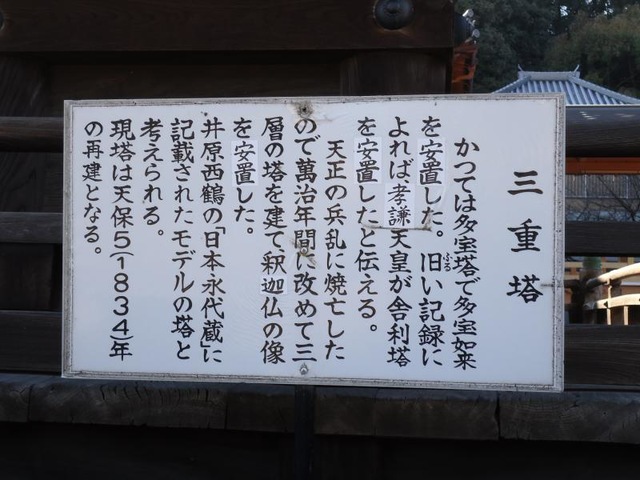 三重塔
かつては多宝塔で多宝如来
を安置した。旧い記録に
ふる
よれば孝謙天皇が舎利塔
を安置したと伝える。
天正の兵乱に焼亡した
ので萬治年間に改めて三
層の塔を建て釈迦仏の像
を安置した。
井原西鶴の「日本永代蔵に
記載されたモデルの塔と
考えられる。
現塔は天保5(1834)年
の再建となる。